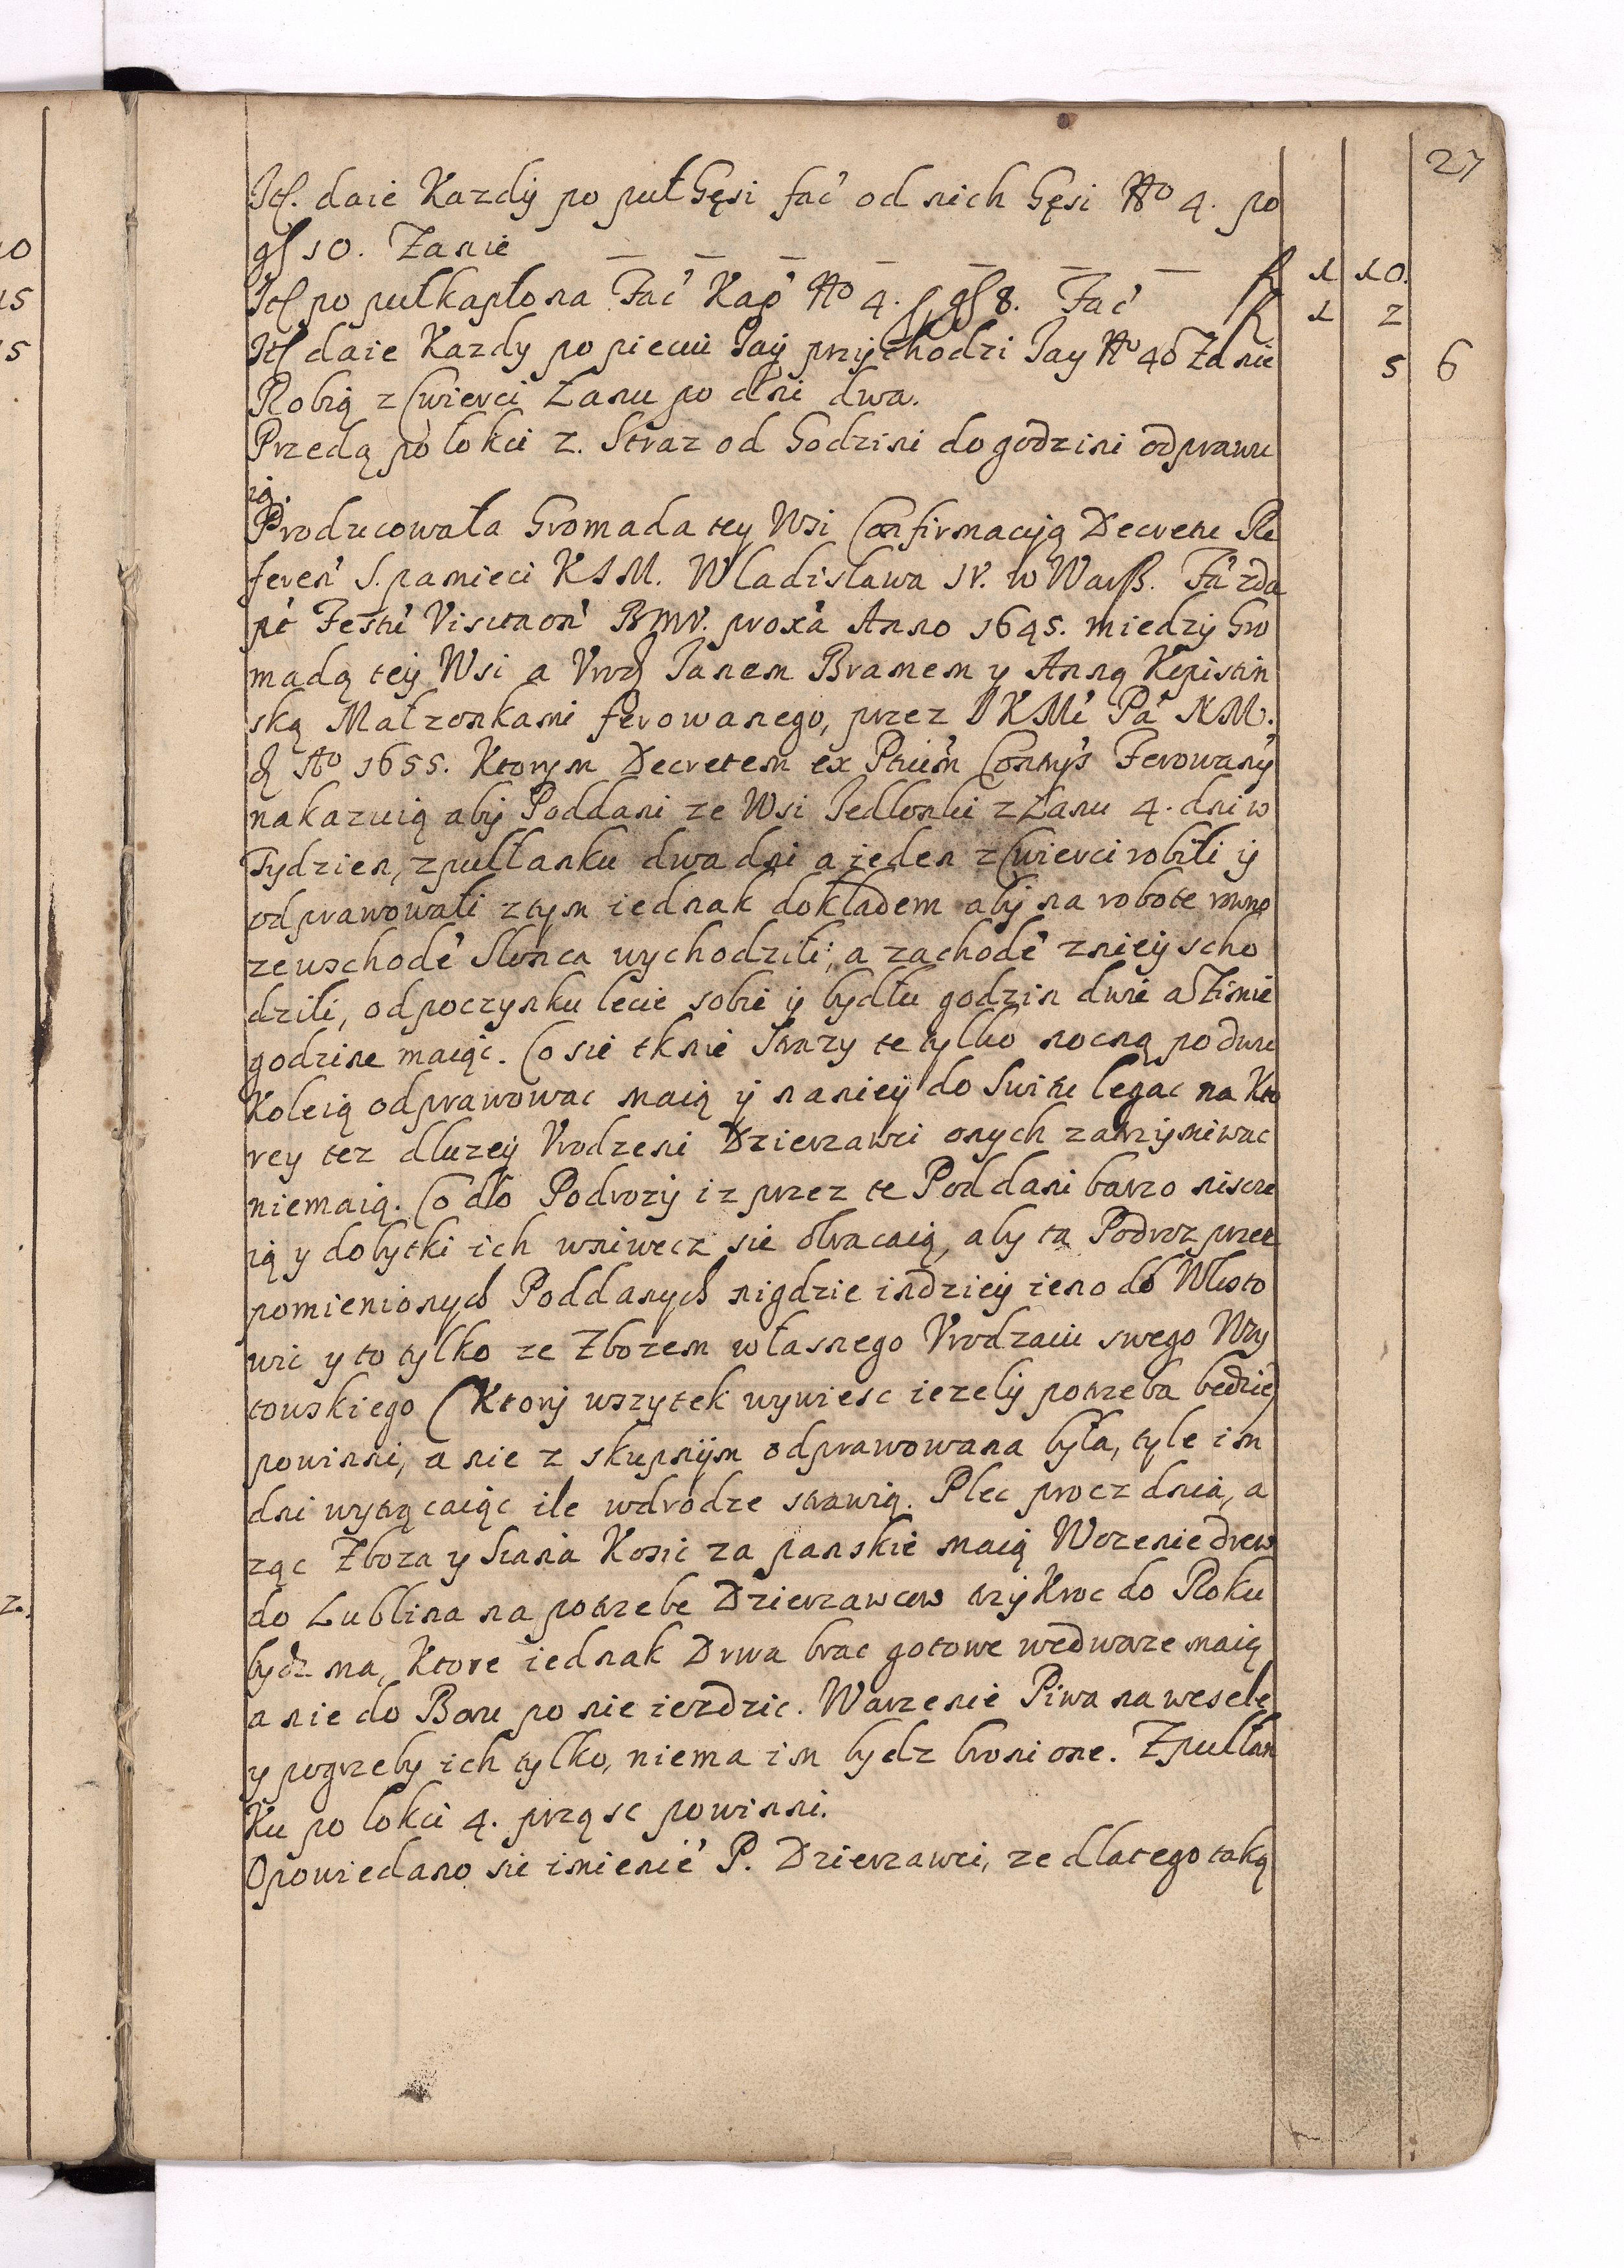 27
Itl. daie Kazdy po puł Gęsi fac̀ od nich Gęsi No 4. po
gl 10. Zanie — — — — — — — fl 1 10.
Itl po pułkapłona Fac̀ Kap̀ No 4. p gl 8. Fac̀ fl 1 2
Itl daie Kazdy po pieciu Iaÿ przÿchodzi Iay No 40 Za nie 5 6
Robią z Cwierci Łanu po dni dwa.
Przedą po łokci 2. Straz od Godzini do godzini odprawu
ią.
Producowała Gromada tey Wsi Confirmacyą Decretu Re
feren̄ S. pamieci KIM. Władisława IV. w Warsz.
pt̀ Festu̇ Visitaõn BMV. prox̀a Anno 1645. miedzÿ Gro
madą teÿ Wsi a Vrodz Janem Bramem y Anną Kepistin
ską Małzonkami ferowanego, przez IKMc̀ Pa NM.
d Ao 1655. Ktorym Decretem ex Ptiu̇m Contÿs Ferowanÿ
nakazuią abÿ Poddani ze Wsi Jedlonki z Łanu 4. dni w
Tydzien, z pułłanku dwa dni a ieden z Cwierci robili ÿ
odprawowali z tym iednak dokładem abÿ na robote rowno
ze wschode̓ Słonca wychodzili; a zachode̓ z nieÿ scho
dzili, odpoczynku lecie sobie ÿ bydłu godzin dwie a Zimie
godzine maiąc. Co sie tknie Strazy te tylko nocną po dwu
Koleią odprawowac maią ÿ na nieÿ do Switu legac na Kto
rey tez dłuzeÿ Vrodzeni Dzierzawci onych zatrzÿmiwac
niemaią. Co dło Podrozÿ iz przez te Poddani barzo niszcze
ią y dobytki ich wniwecz sie obracaią, aby ta Podroz przez
pomienionych Poddanych nigdzie indzieÿ ieno do Włosto
wic y to tylko ze Zbozem własnego Vrodzaiu swego Wzy
towskiego (Ktorÿ wszytek wywiesc iezelÿ potrzeba bedzie)
powinni, a nie z skupnÿm odprawowana była, tyle im
dni wytrącaiąc ile w drodze strawią. Plec procz dnia, a
ząc Zboza y Siana Kosic za panskie maią Wozenie drew
do Lublina na potrzebe Dzierzawcow trzÿ Kroc do Roku
bydz ma, Ktore iednak Drwa brac gotowe we dworze maią
a nie do Boru po nie iezdzic. Warzenie Piwa na wesele
y pogrzeby ich tylko, niema im bydz bronione. Z pułłan
Ku po łokci 4. prząsc powinni.
Opowiedano sie imienie̓ P. Dzierzawci, ze dlatego taką